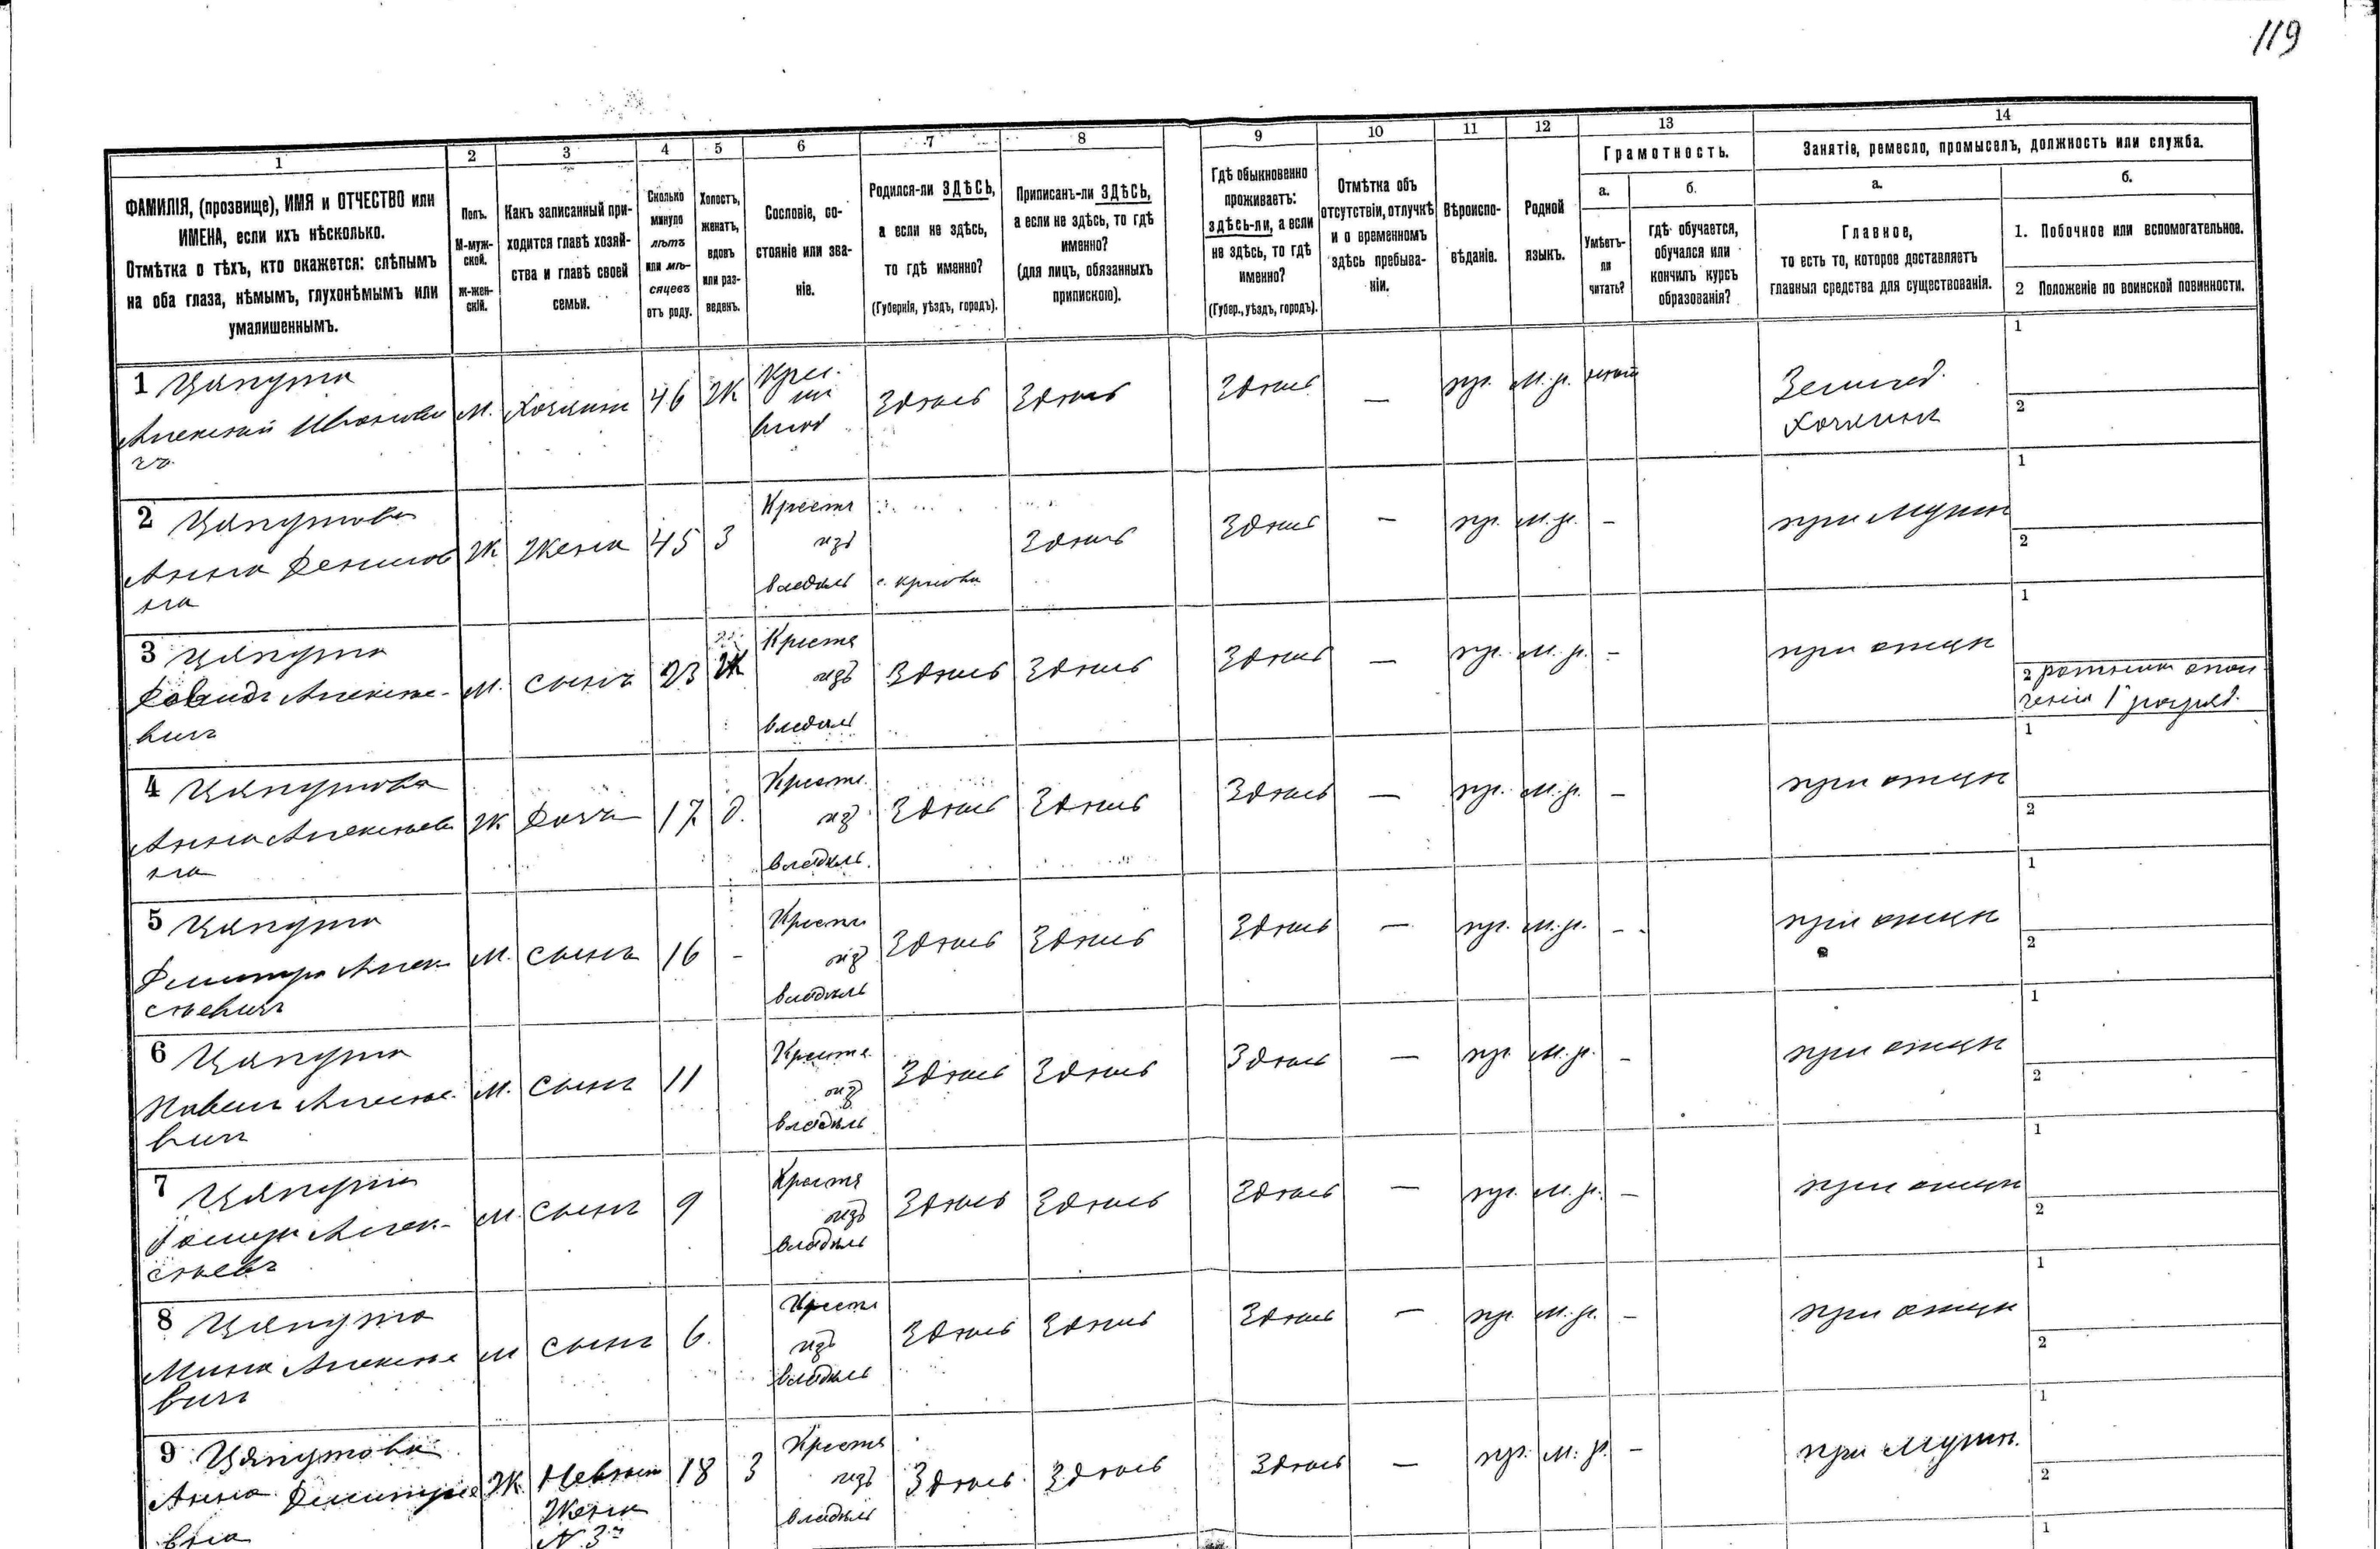 119
1
2
3
4
5
6
7
8
9
10
11
12
13
14
ФАМИЛІЯ, (прозвище), ИМЯ и ОТЧЕСТВО или
ИМЕНА, если ихъ нѣсколько.
Отмѣтка о тѣхъ, кто окажется: слѣпымъ
на оба глаза, нѣмымъ, глухонѣмымъ или
умалишеннымъ.
Полъ.
М-муж-
ской.
Ж-жен-
скій.
Какъ записанный при-
ходится главѣ хозяй-
ства и главѣ своей
семьи.
Сколько
минуло
лѣтъ
или мѣ-
сяцевъ
отъ роду.
Холостъ,
женатъ,
вдовъ
или раз-
веденъ.
Сословіе, со-
стояніе или зва-
ніе.
Родился-ли ЗДѢСЬ,
а если не здѣсь,
то гдѣ именно?
(Губернія, уѣздъ, городъ).
Приписанъ-ли ЗДѢСЬ,
а если не здѣсь, то гдѣ
именно?
(для лицъ, обязанныхъ
припискою).
Гдѣ обыкновенно
проживаетъ:
здѣсь-ли, а если
не здѣсь, то гдѣ
именно?
(Губер., уѣздъ, городъ).
Отмѣтка объ
отсутствіи, отлучкѣ
и о временномъ
здѣсь пребыва-
ніи.
Вѣроиспо-
вѣданіе.
Родной
языкъ.
Грамотность.
а.
Умѣетъ-
ли
читать?
б.
гдѣ обучается,
обучался или
кончилъ курсъ
образованія?
Занятіе, ремесло, промыселъ, должность или служба.
а.
Главное,
то есть то, которое доставляетъ
главныя средства для существованія.
б.
1. Побочное или вспомогательное.
2 Положеніе по воинской повинности.
1 Цяпута
Алексѣй Иванови
чъ
М. Хозяинъ 46 Ж
Крес.
из
влад
Здѣсь Здѣсь Здѣсь — пр. м. р.
Землед.
Хозяинъ
1
2
2 Цяпутова
Анна Денисов
на
Ж Жена 45 З
Крестя
изъ
владѣль
Здѣсь Здѣсь — пр. м. р. — при мужѣ
1
2
3 Цяпута
Давидъ Алексѣе-
вичъ
М. сынъ 23 Ж
Крестя
изъ
владѣль
Здѣсь Здѣсь Здѣсь — пр. м. р. - при отцѣ
1
2 ратникъ опол
ченія 1 разряд.
4 Цяпутова
Анна Алексѣев
на
Ж Дочь 17 д.
Крестя
изъ
владѣль.
Здѣсь Здѣсь Здѣсь — пр. м. р. — при отцѣ
1
2
5 Цяпута
Дмитръ Алек
сѣевичъ
М. сынъ 16 -
Крестя
изъ
владѣль
Здѣсь Здѣсь Здѣсь — пр. м. р. - - при отцѣ
1
2
6 Цяпута
Павелъ Алексѣе
вичъ
М. сынъ 11
Крестя
изъ
владѣль
Здѣсь Здѣсь Здѣсь — пр. м. р. - при отцѣ
1
2
7 Цяпута
Алек-
сѣевъ
М. сынъ 9
Крестя
изъ
владѣль
Здѣсь Здѣсь Здѣсь — пр. м. р. — при отцѣ
1
2
8 Цяпута
Мина Алексѣе
вичъ
М сынъ 6.
Крестя
изъ
владѣль
Здѣсь Здѣсь Здѣсь — пр. м. р. — при отцѣ
1
2
9 Цяпутова
Анна Дмитрие
вна
Ж. Невѣст
Жена
N 3
18 З
Крестя
изъ
владѣль
Здѣсь Здѣсь Здѣсь — пр. м. р. — при мужѣ.
1
2
1